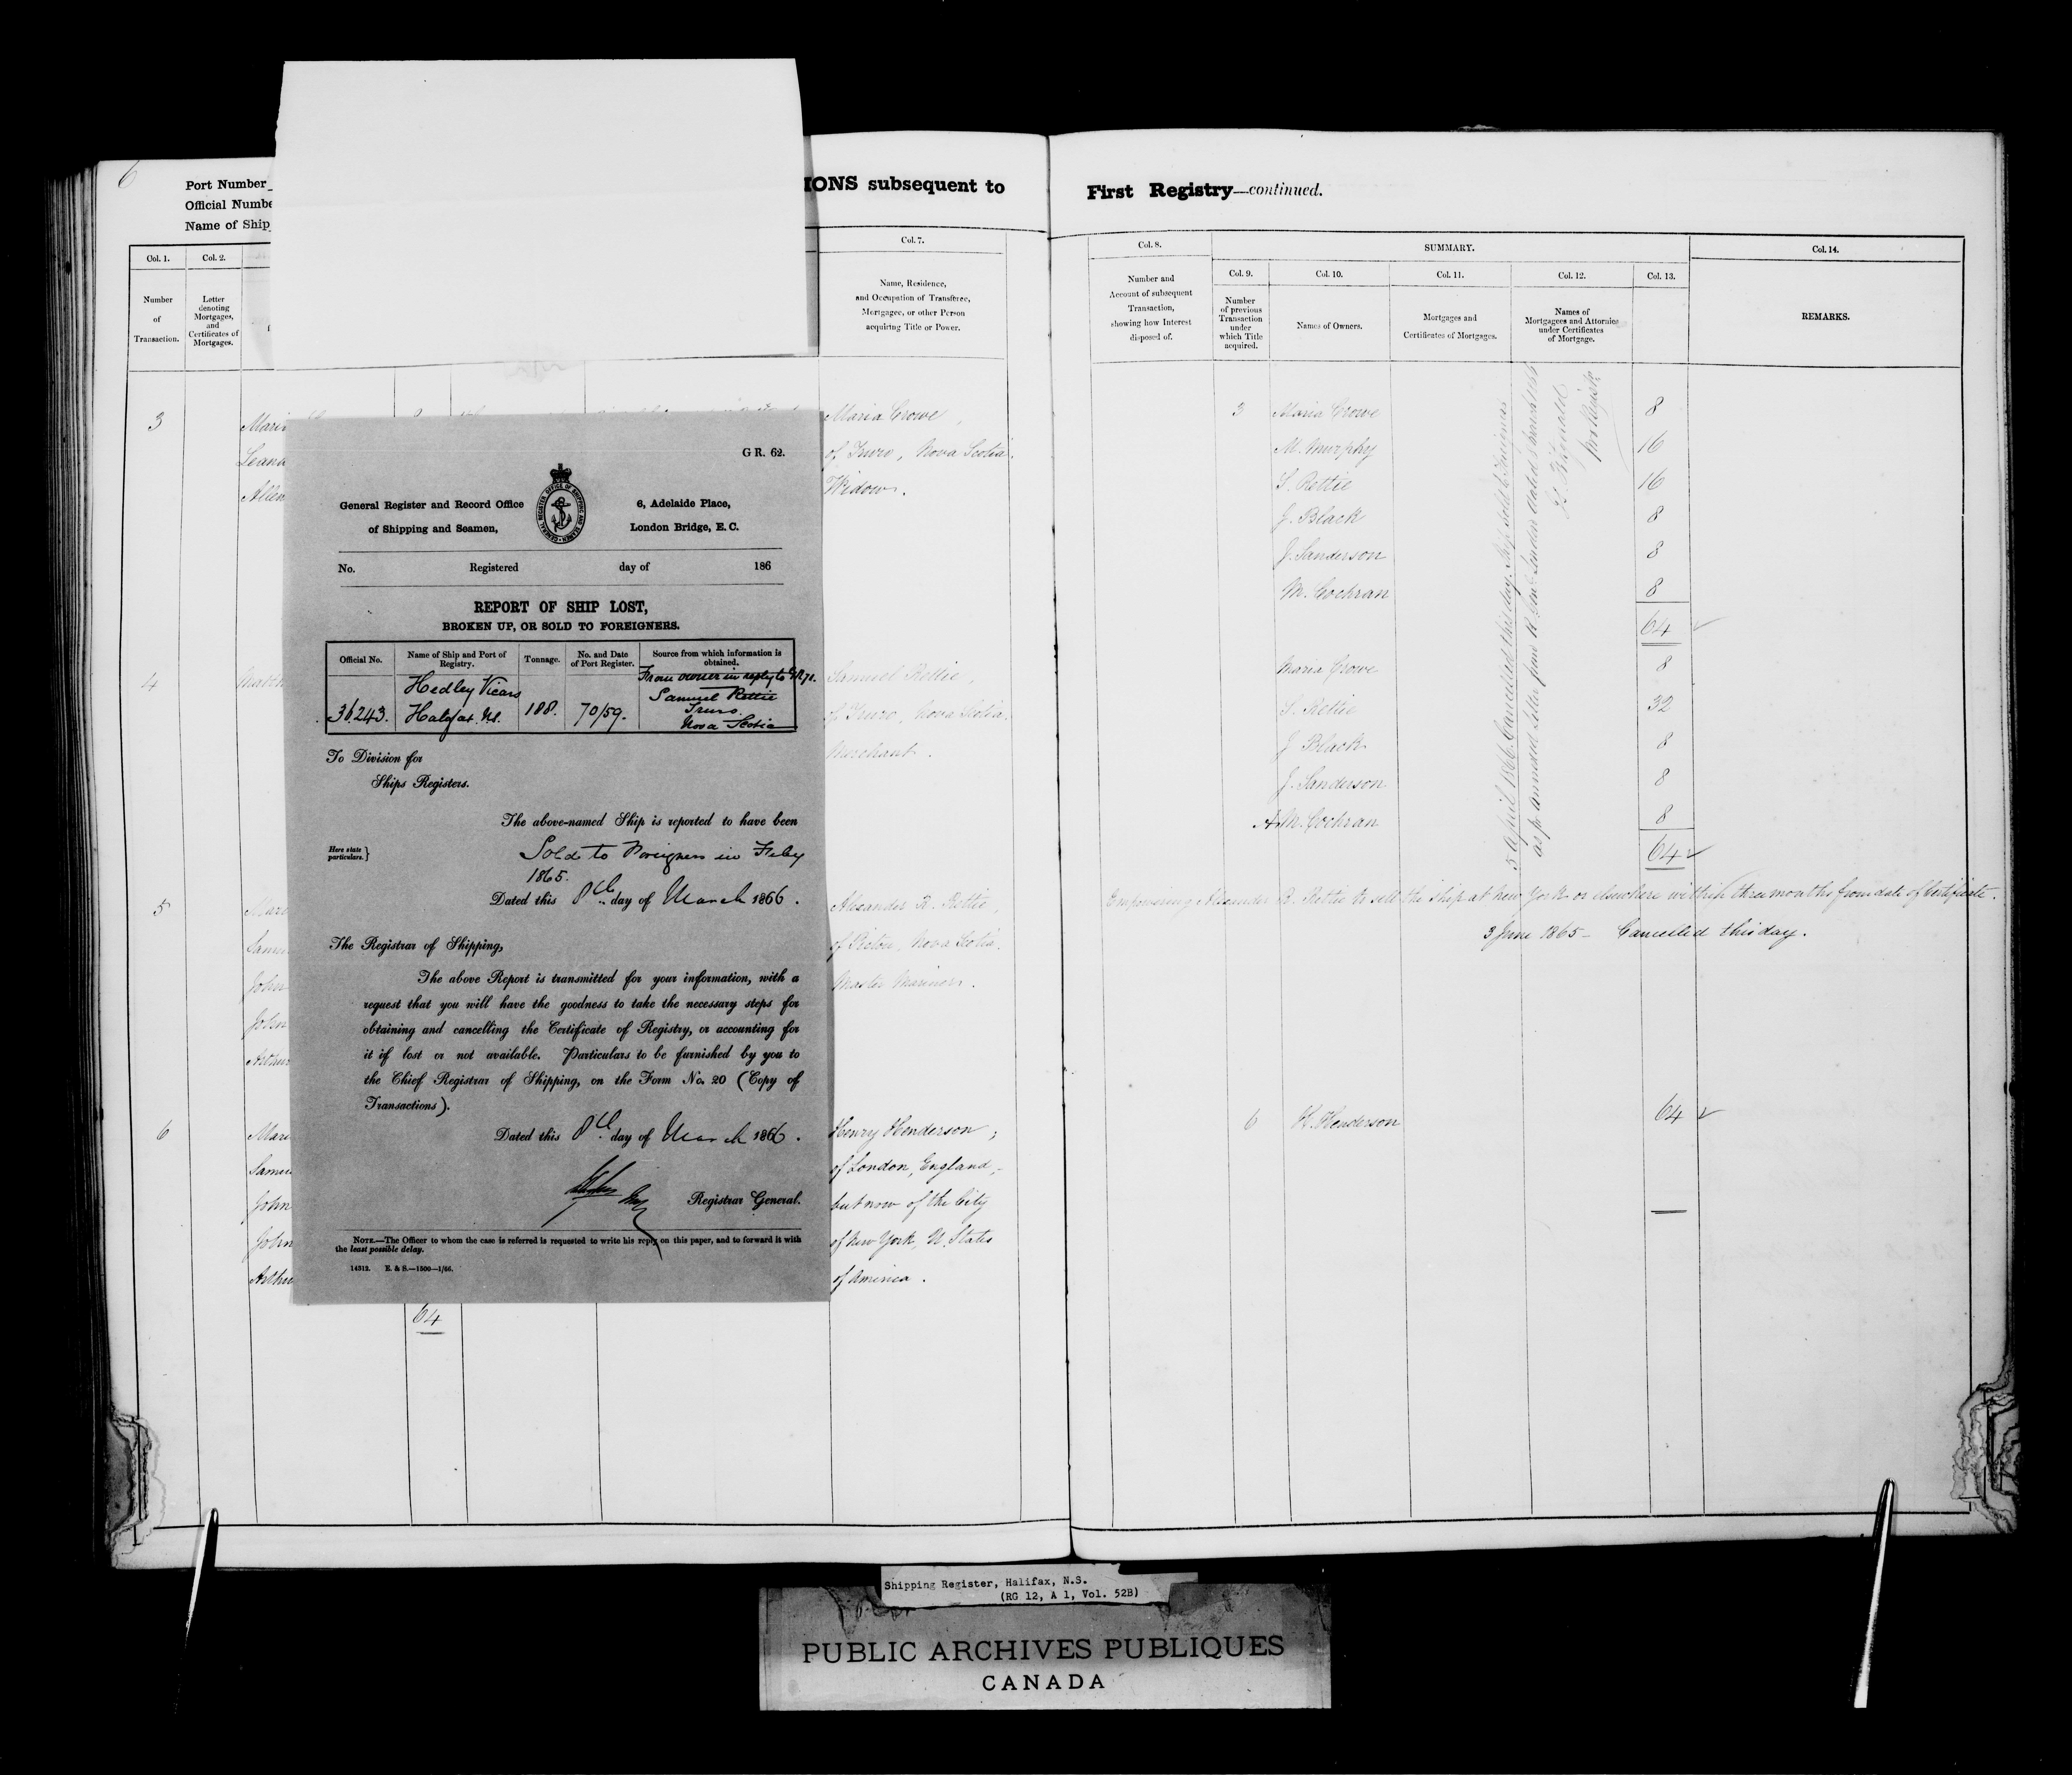 6
Port Number
Official Numbe
Name of Ship
IONS subsequent to
Col. 1.
Col. 2.
Col. 7.
Number
of
Transaction.
Letter
denoting
Mortgages,
and
Certificates of
Mortgages.
Name, Residence,
and Occupation of Transferee,
Mortgagee, or other Person
acquiring Title or Power.
3
Mari
Maria Crowe,
Leand
of Truro, Nova Scotia.
Allen
Widow.
4
Matth
Samuel Rettie,
of Truro, Nova Scotia.
Merchant.
5
Alexander B. Rettie,
Samu
of Pictou, Nova Scotia.
John
Master Mariner.
John
Arthur
6
Mari
Henry Henderson,
Samu
of London, England,
John
but now of the City
John
of New York, U. States
Arthu
of America.
64
G R. 62.
General Register and Record Office
of Shipping and Seamen,
GENERAL REGISTER OFFICE OF SHIPPING AND SEAMEN
6, Adelaide Place,
London Bridge, E. C.
No. Registered day of 186
REPORT OF SHIP LOST,
BROKEN UP, OR SOLD TO FOREIGNERS.
Official No.
Name of Ship and Port of
Registry.
Tonnage.
No. and Date
of Port Register.
Source from which information is
obtained.
36243.
Hedley Vicars
Halifax. N.S.
188.
70/59.
From owner in reply to G.R. 71.
Samuel Rettie
Truro.
Nova Scotia
To Division for
Ships Registers.
The above-named Ship is reported to have been
Here state
particulars.}
Sold to Foreigners in Feby
1865.
Dated this 8th day of March 1866.
The Registrar of Shipping,
The above Report is transmitted for your information, with a
request that you will have the goodness to take the necessary steps for
obtaining and cancelling the Certificate of Registry, or accounting for
it if lost or not available. Particulars to be furnished by you to
the Chief Registrar of Shipping, on the Form No. 20 (Copy of
Transactions).
Dated this 8th day of March 1866.
Registrar General.
NOTE.—The Officer to whom the case is referred is requested to write his reply on this paper, and to forward it with
the least possible delay.
14312. E. & S.—1500—1/66.
First Registry—continued.
Col. 8.
SUMMARY.
Col. 14.
Col. 9.
Col. 10.
Col. 11.
Col. 12.
Col. 13.
Number and
Account of subsequent
Transaction,
showing how Interest
disposed of.
Number
of previous
Transaction
under
which Title
acquired.
Names of Owners.
Mortgages and
Certificates of Mortgages.
Names of
Mortgagees and Attornies
under Certificates
of Mortgage.
REMARKS.
3 Maria Crowe 8
M. Murphy 16
S. Rettie 16
J. Black 8
J. Sanderson 8
M. Cochran 8
64
Maria Crowe 8
S. Rettie 32
J. Black 8
J. Sanderson 8
A. M. Cochran 8
64
5 April 1866. Cancelled this day, Ship sold to Foreigners
as pr annexed letter from R. Genl London dated 8 March 1866
Empowering Alexander B. Rettie to sell the ship at New York or elsewhere within three months from date of Certificate.
3 June 1865 – Cancelled this day.
6 H. Henderson 64
Shipping Register, Halifax, N.S.
(RG 12, A 1, Vol. 52B)
PUBLIC ARCHIVES PUBLIQUES
CANADA